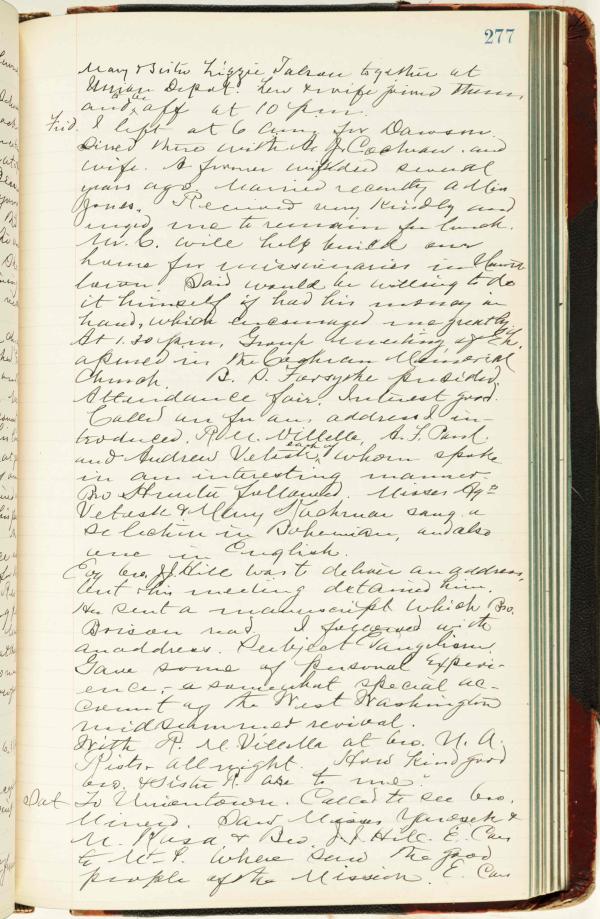 277
Mary & Sister Lizzie Talson together at
Union Depot. Lew & wife joined them,
and we off at 10 pm.
Frid. I left at 6 am for Dawson.
Dined there with M. J. Cochran and
wife. A former wife died several
years ago, married recently a Miss
Jones. Received very kindly and
urged me to remain for lunch.
Mr. C. will help build our
home for missionaries in
town. Said would be willing to do
it himself if had his money on
hand, which encouraged me greatly.
At 1.30 pm, Group meeting of Chs.
opened in the Cochran Memorial
Church. B. S. Forsythe presided.
Attendance fair. Interest good.
Called on for an address I in-
troduced R. M. Villella, A. F.
and Andrew each of whom spoke
in an interesting manner.
Bro followed. Misses
& Mary Kachman sang a
selection in Bohemian, and also
one in English.
Eve bro. J. J. Hill was to deliver an address,
but his meeting detained him.
He sent a manuscript which Bro.
Brison read. I followed with
an address. Subject Evangelism.
Gave some of personal experi-
ence, - a somewhat special ac-
count of the West Washington
midsummer revival.
With R. M. Villella at bro. N. A.
Rist's all night. How kind good
bro. & Sister R. are to me.
Sat To Uniontown. Called to see bro.
Minerd. Saw Misses &
M. Kusa & Bro. J. J. Hill. E. Cars
to Mt. P. Where saw the good
people of the Mission. E. Cars